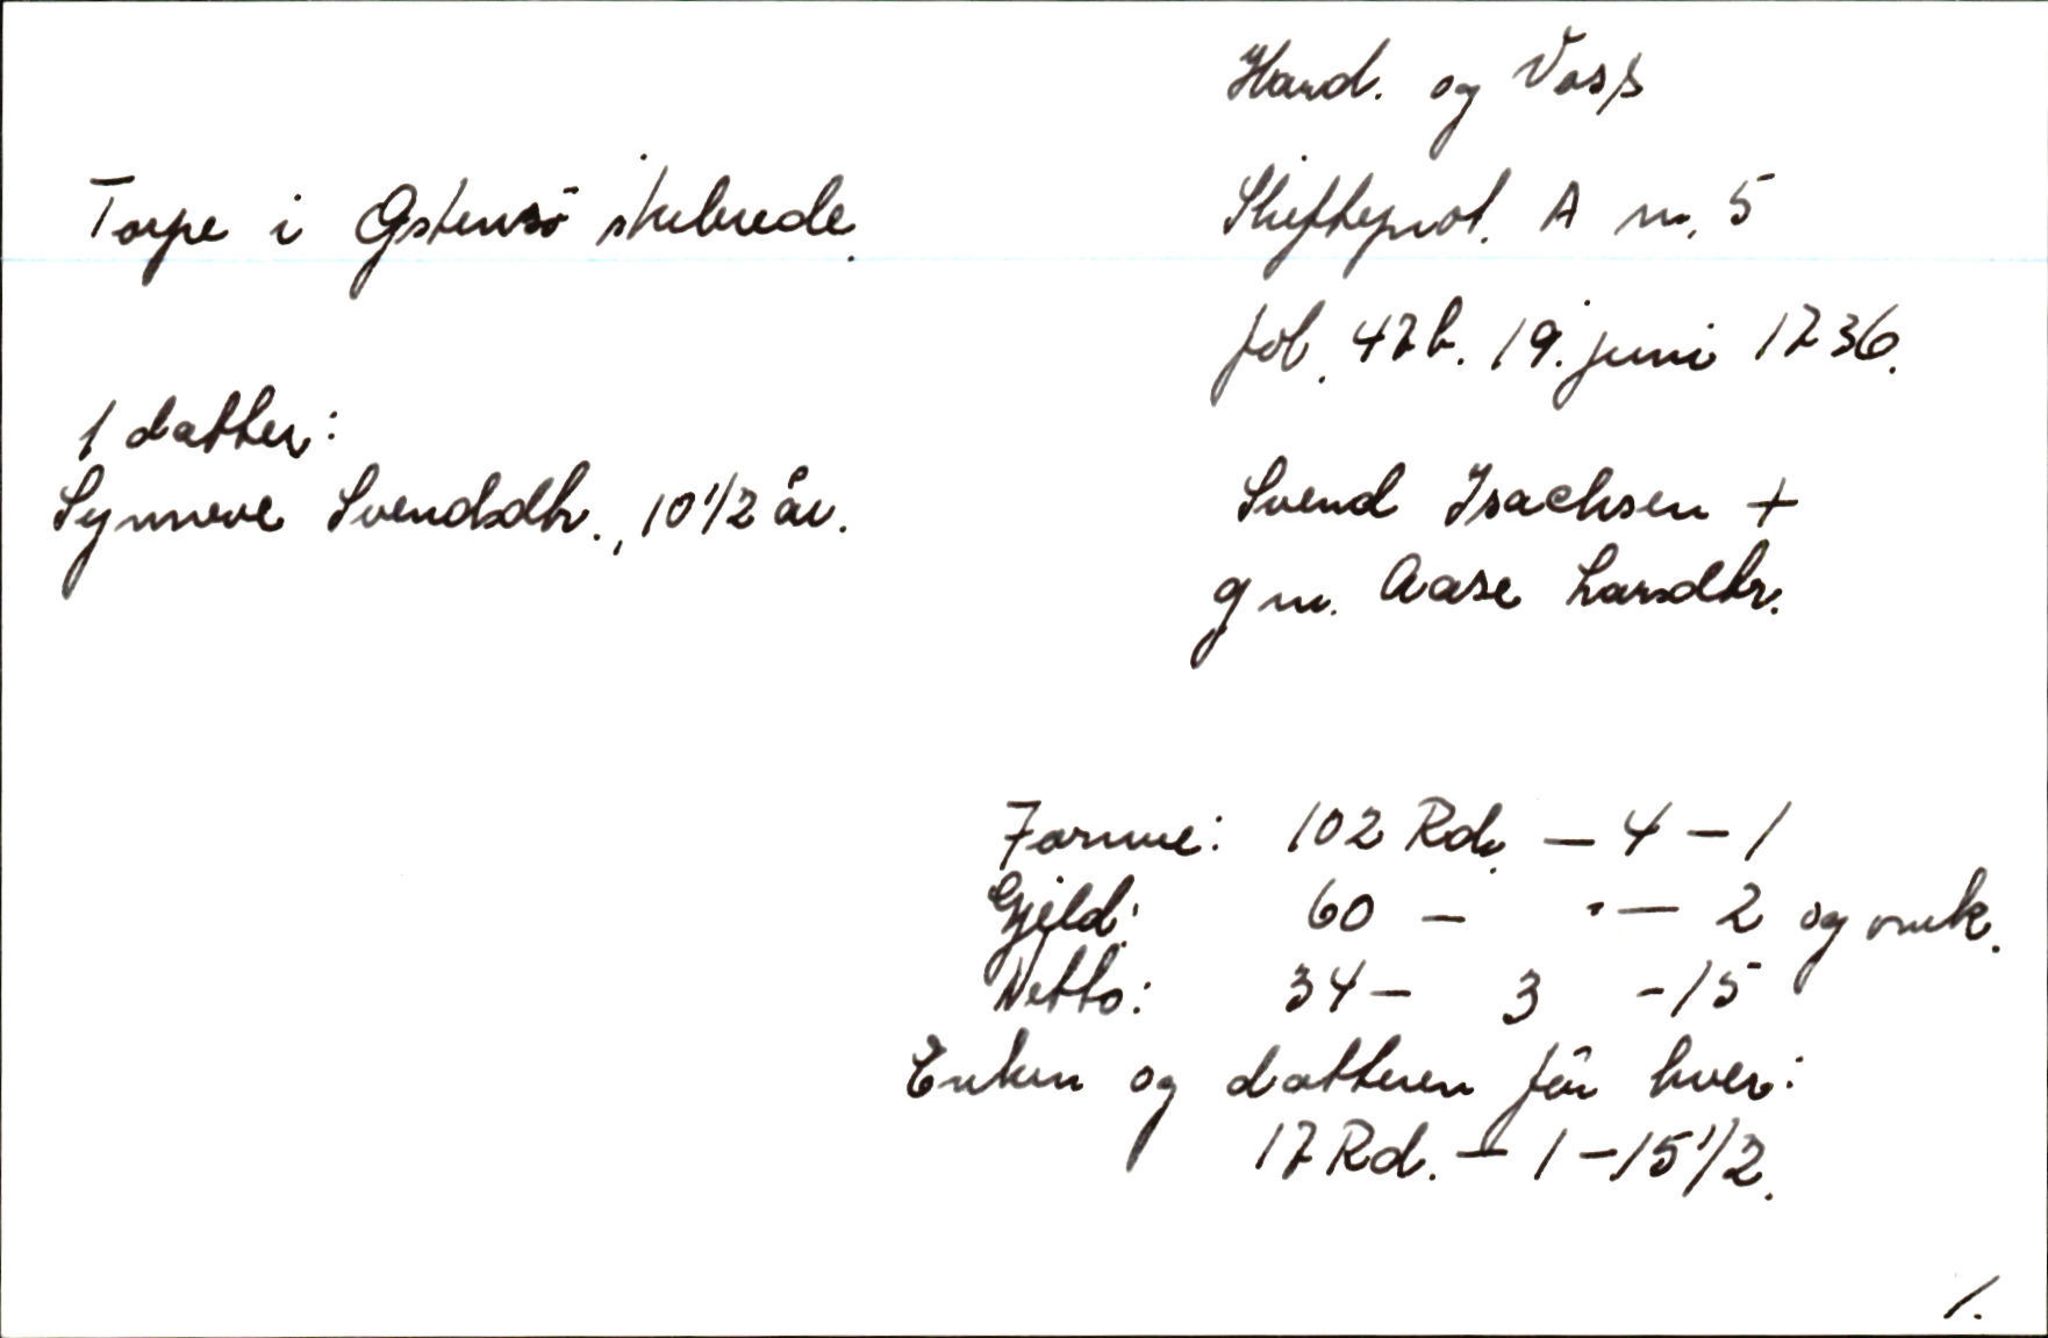 Hard. og Voss
Torpe i Østensö skibrede.
Skifteprot. A nr. 5
fol. 47b. 19. juni 1736.
1 datter:
Synneve Svendsdtr., 10 1/2 år.
Svend Isachsen +
gm. Aase Larsdtr.
Formue: 102 Rd. - 4 - 1
Gjeld: 60 - · - 2 og omk.
Netto: 34 - 3 - 15
Enken og datteren får hver:
17 Rd. - 1 - 15 1/2.
1.